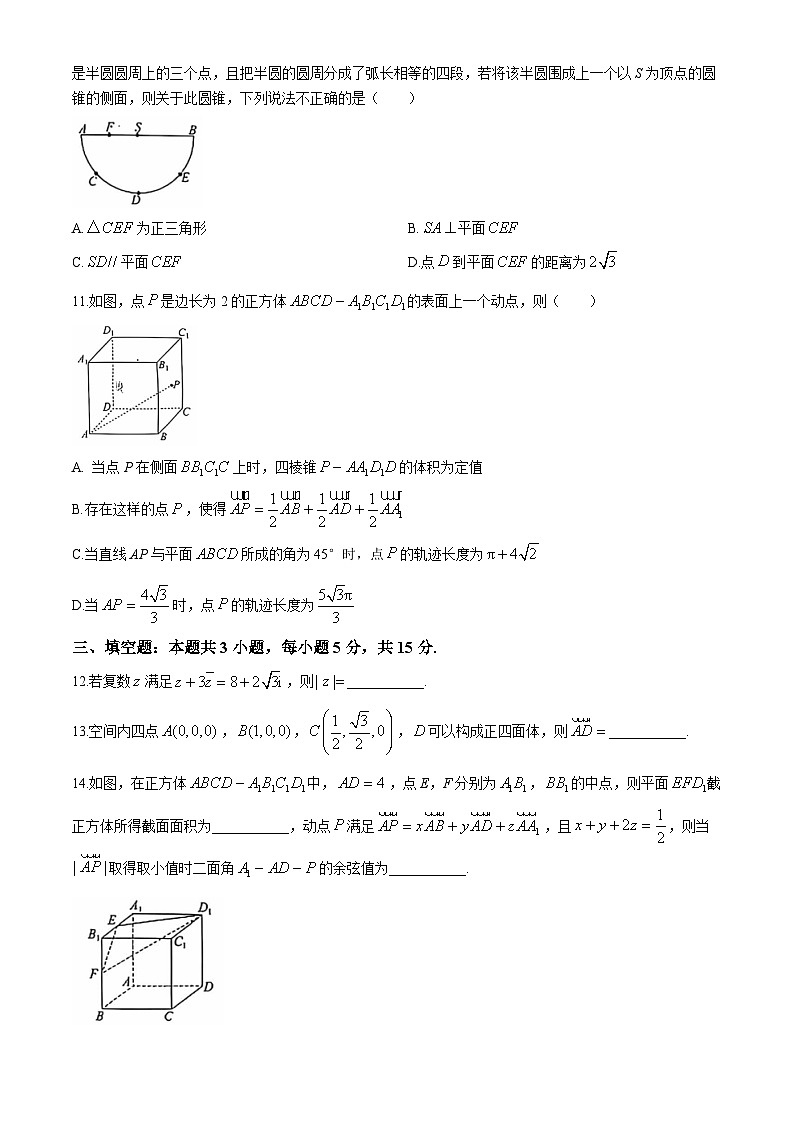 是半圆圆周上的三个点，且把半圆的圆周分成了弧长相等的四段，若将该半圆围成上一个以 S 为顶点的圆
锥的侧面，则关于此圆锥，下列说法不正确的是（　　）
A F S B
C E
D
A. △CEF 为正三角形 B. SA⊥平面 CEF
C. SD// 平面 CEF D.点 D 到平面 CEF 的距离为 2√3
11.如图，点 P 是边长为 2 的正方体 ABCD − A₁B₁C₁D₁ 的表面上一个动点，则（　　）
D₁ C₁
A₁ B₁
P
D C
A B
A. 当点 P 在侧面 BB₁C₁C 上时，四棱锥 P − AA₁D₁D 的体积为定值
B.存在这样的点 P，使得 AP = 1/2 AB + 1/2 AD + 1/2 AA₁
C.当直线 AP 与平面 ABCD 所成的角为 45°时，点 P 的轨迹长度为 π + 4√2
D.当 AP = 4√3/3 时，点 P 的轨迹长度为 5√3π/3
三、填空题：本题共 3 小题，每小题 5 分，共 15 分.
12.若复数 z 满足 z + 3z̅ = 8 + 2√3i，则 | z |= ___________.
13.空间内四点 A(0,0,0)，B(1,0,0)，C(1/2, √3/2, 0)，D 可以构成正四面体，则 AD = ___________.
14.如图，在正方体 ABCD − A₁B₁C₁D₁ 中，AD = 4，点 E，F 分别为 A₁B₁，BB₁ 的中点，则平面 EFD₁ 截
正方体所得截面面积为___________,动点 P 满足 AP = xAB + yAD + zAA₁，且 x + y + 2z = 1/2，则当
| AP | 取得取小值时二面角 A₁ − AD − P 的余弦值为___________.
A₁ D₁
E
B₁ C₁
F
A D
B C